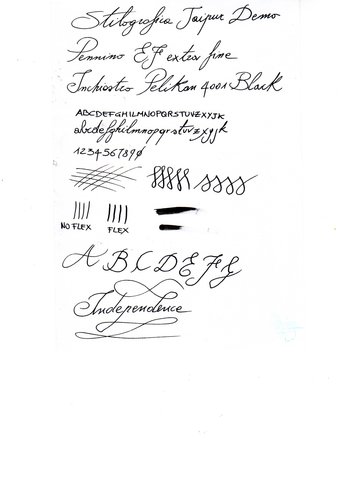 Stilografica Jaipur Demo
Pennino EF extra fine
Inchiostro Pelikan 4001 Black
ABCDEFGHILMNOPQRSTUVZXYJK
abcdefghilmnopqrstuvzxyjk
1234567890
NO FLEX FLEX
A B C D E F G
Independence